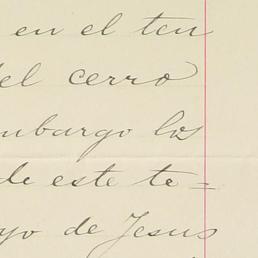 en el ten
del cerro
embargo los
de este te=
yo de Jesus